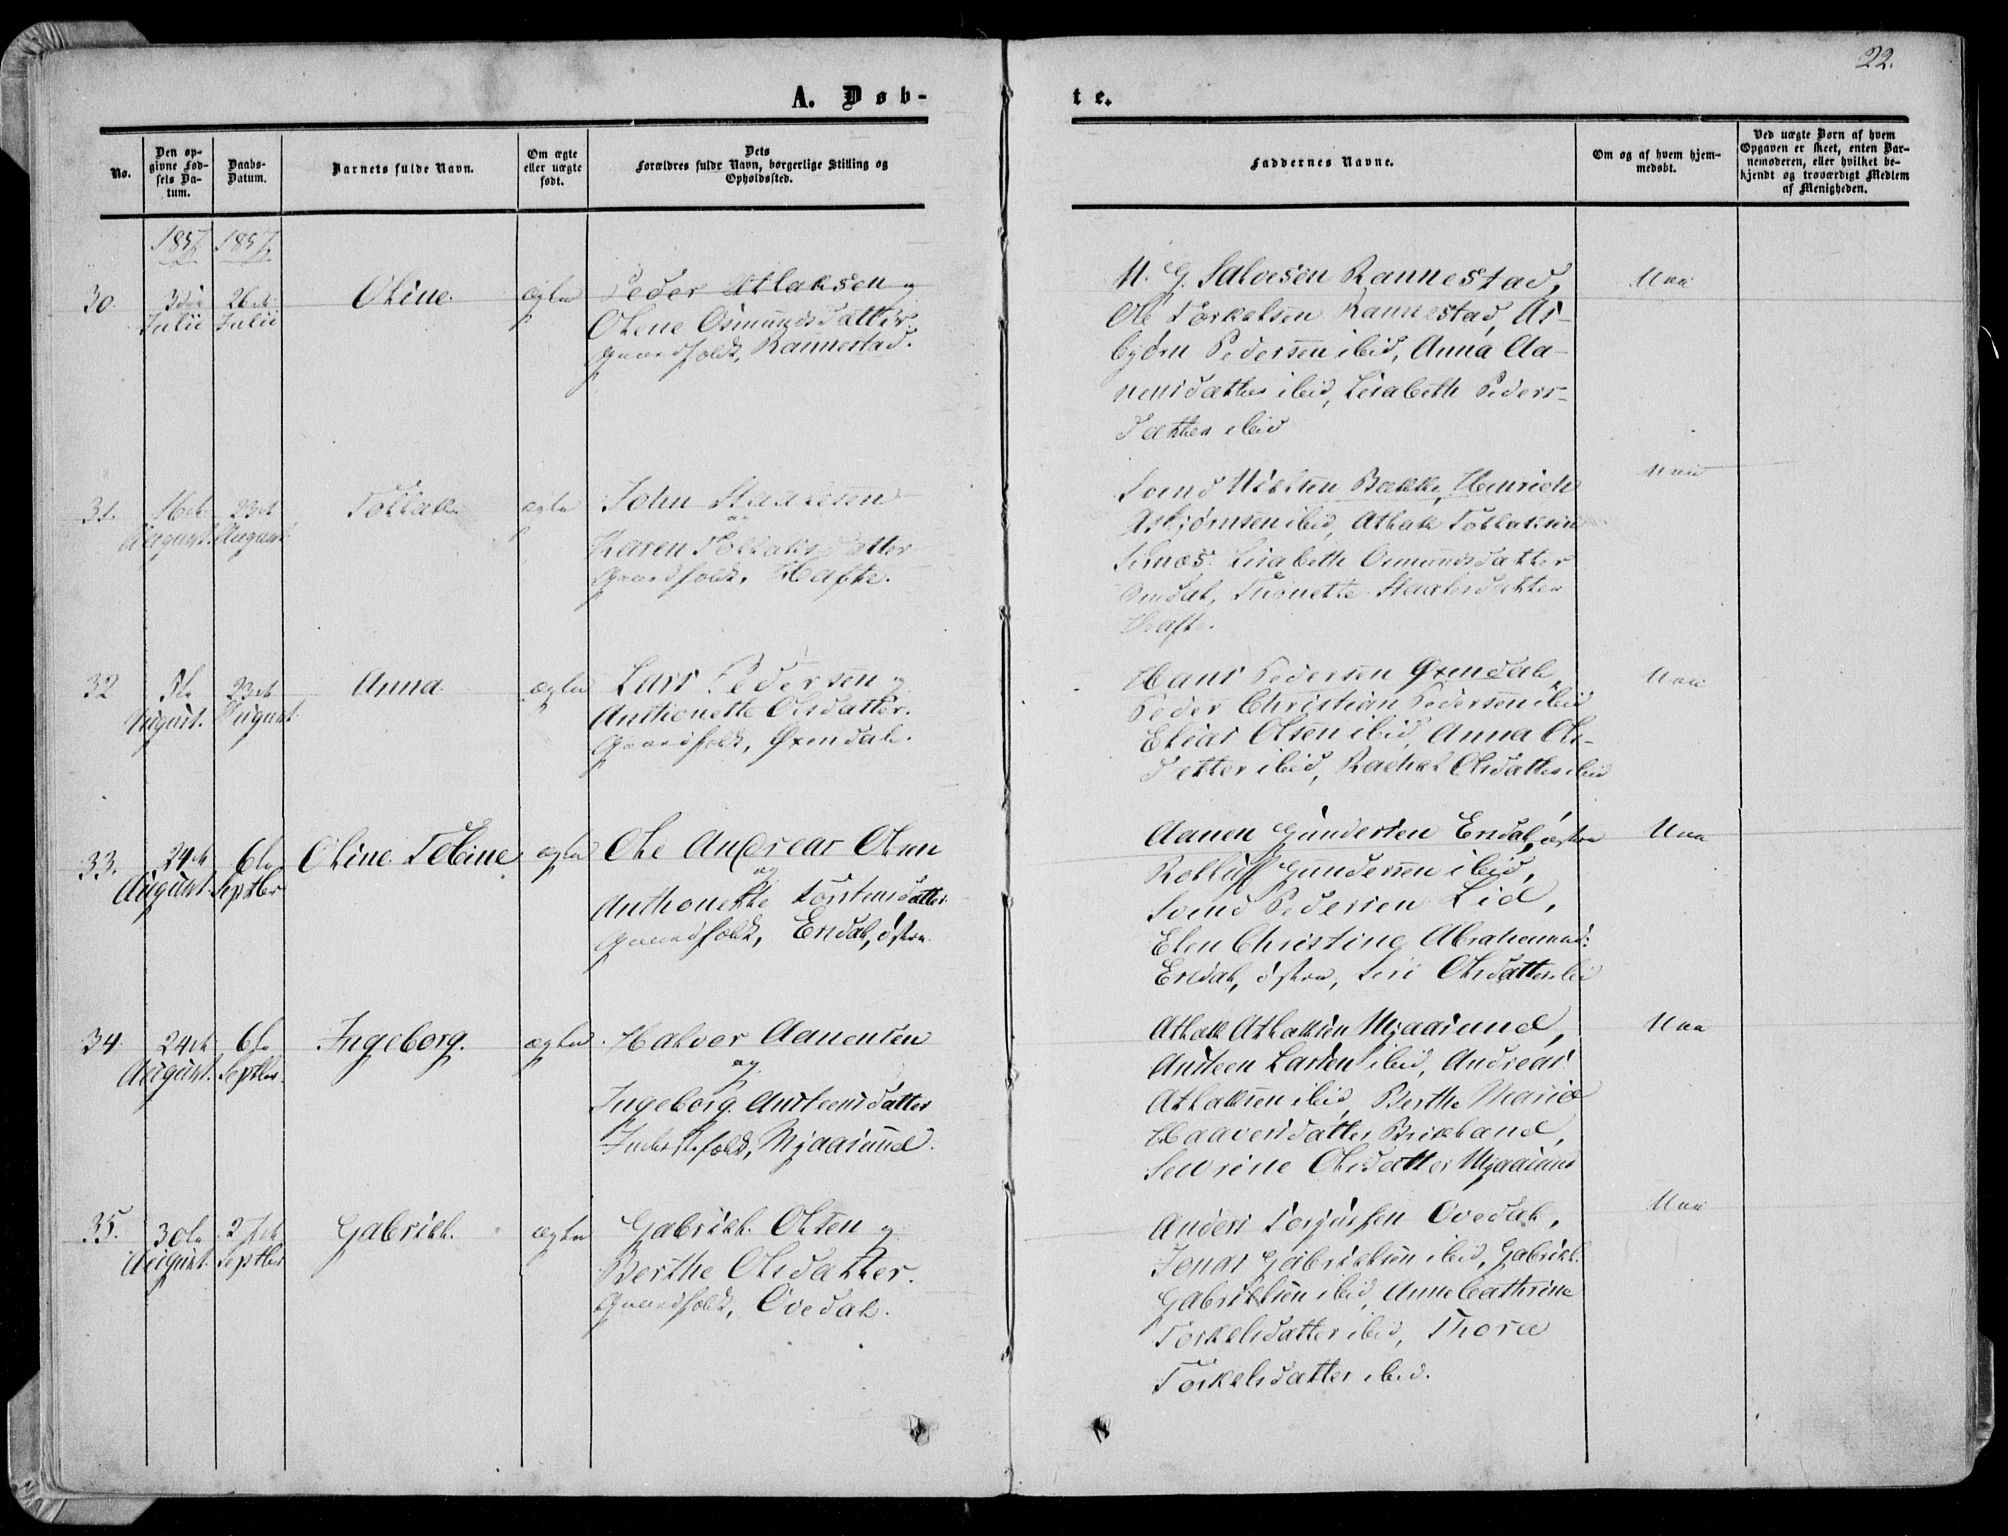 22.
A. Døb-
te.
No.
Den op-
givne Fød-
sels Da-
tum.
Daabs-
Datum.
Barnets fulde Navn.
Om ægte
eller uægte
født.
Dets
Forældres fulde Navn, borgerlige Stilling og
Opholdssted.
Faddernes Navne.
Om og af hvem hjem-
medøbt.
Ved uægte Børn af hvem
Opgaven er skeet, enten Bar-
nemoderen, eller hvilket be-
kjendt og troværdigt Medlem
af Menigheden.
1857
1857
30.
3die
Julii
26de
Julii
Oline.
ægte
Peder Atlaksen og
Olene Osmundsdatter.
Gaardfolk, Rannestad.
N. G. Salvesen Rannestad,
Ole Torkelsen Rannestad, As-
bjørn Pedersen ibid, Anna Aa-
nensdatter ibid, Lisabeth Peders-
datter ibid
31.
16de
August.
23de
August
Tollak.
ægte
John Staalesen
og
Karen Tollaksdatter
Gaardfolk, Hafte.
Svend Nielsen Bække, Henrich
Asbjørnsen ibid, Atlak Tollaksen
Lisabeth Osmundsdatter
Staalesdatter
32
August.
23de
August
Anna
ægte
Lars Pedersen og
Anthonette Olsdatter.
Gaardfolk, Øxendal.
Hans Pedersen Øxendal,
Peder Christian Pedersen ibid
Elias Olsen ibid, Anna Ols-
datter ibid, Rachel Olsdatter ibid
Naa
33.
24de
August.
6te
Septbr
Oline Tobine
ægte
Ole Andreas Olsen
og
Anthonette Torstensdatter
Gaardfolk, Ersdal, østre.
Aanen Gundersen Ersdal, østre
Rolluff Gundersen ibid,
Svend Pedersen Lid,
Elen Christine Abrahamsd:
Ersdal, østre, Siri Olsdatter ibi
34
24de
August.
6te
Septbr.
Ingeborg.
ægte
Halvor Aanensen
og
Ingeborg Austeensdatter
Inderstfolk, Mjaasund.
Atlak Atlaksen Mjaasund,
Austeen Larsen ibid, Andreas
Atlaksen ibid, Berthe Maria
Haaversdatter Birkeland,
Sevrine Olsdatter Mjaasund
35.
30te
August.
27de
Septbr
Gabriel.
ægte
Gabriel Olsen og
Berthe Olsdatter.
Gaardfolk, Ovedal.
Anders Torjussen Ovedal,
Jonas Gabrielsen ibid, Gabriel
Gabrielsen ibid, Anne Cathrine
Torkelsdatter ibid, Thora
Torkelsdatter ibid.